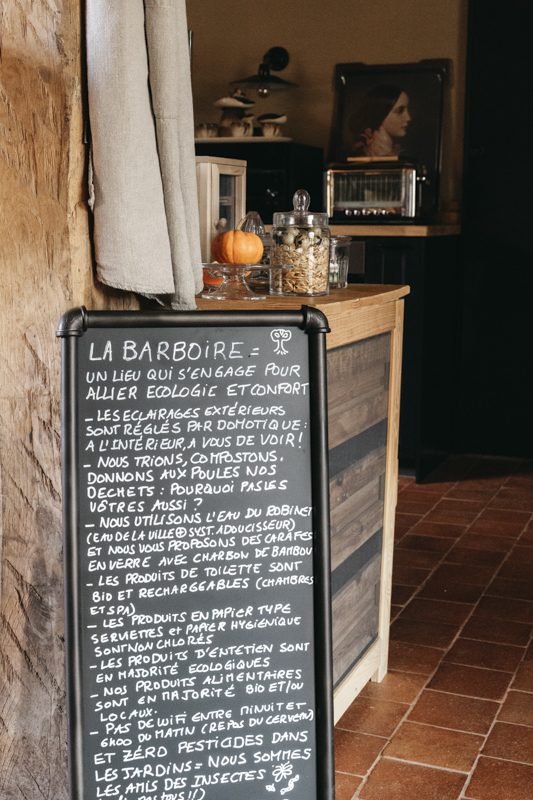 LA BARBOIRE =
UN LIEU QUI S'ENGAGE POUR
ALLIER ECOLOGIE ET CONFORT
- LES ECLAIRAGES EXTÉRIEURS
SONT RÉGLÉS PAR DOMOTIQUE :
A L'INTÉRIEUR, A VOUS DE VOIR !
- NOUS TRIONS, COMPOSTONS,
DONNONS AUX POULES NOS
DECHETS : POURQUOI PAS LES
VÔTRES AUSSI ?
- NOUS UTILISONS L'EAU DU ROBINET
(EAU DE LA VILLE + SYST. ADOUCISSEUR)
ET NOUS VOUS PROPOSONS DES CARAFES
EN VERRE AVEC CHARBON DE BAMBOU
- LES PRODUITS DE TOILETTE SONT
BIO ET RECHARGEABLES (CHAMBRES
ET SPA)
- LES PRODUITS EN PAPIER TYPE
SERVIETTES et PAPIER HYGIÉNIQUE
SONT NON CHLORÉS
- LES PRODUITS D'ENTETIEN SONT
EN MAJORITÉ ECOLOGIQUES
- NOS PRODUITS ALIMENTAIRES
SONT EN MAJORITÉ BIO ET/OU
LOCAUX.
- PAS DE WIFI ENTRE MINUIT ET
6H00 DU MATIN (REPOS DU CERVEAU)
ET ZÉRO PESTICIDES DANS
LES JARDINS = NOUS SOMMES
LES AMIS DES INSECTES
TOUS !!)